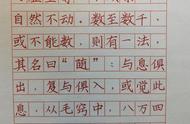 自然不动。数至数千,
或不能数,则有一法,
其名曰“随”:与息俱
出,复与俱入,或觉此
息,从毛窍中,八万四